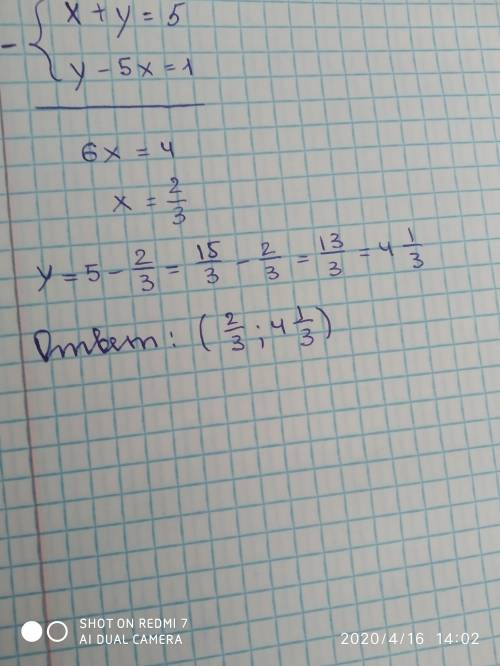 - { x + y = 5
y - 5x = 1
6x = 4
x = 2/3
y = 5 - 2/3 = 15/3 - 2/3 = 13/3 = 4 1/3
Ответ: (2/3; 4 1/3)
SHOT ON REDMI 7
AI DUAL CAMERA
2020/4/16 14:02